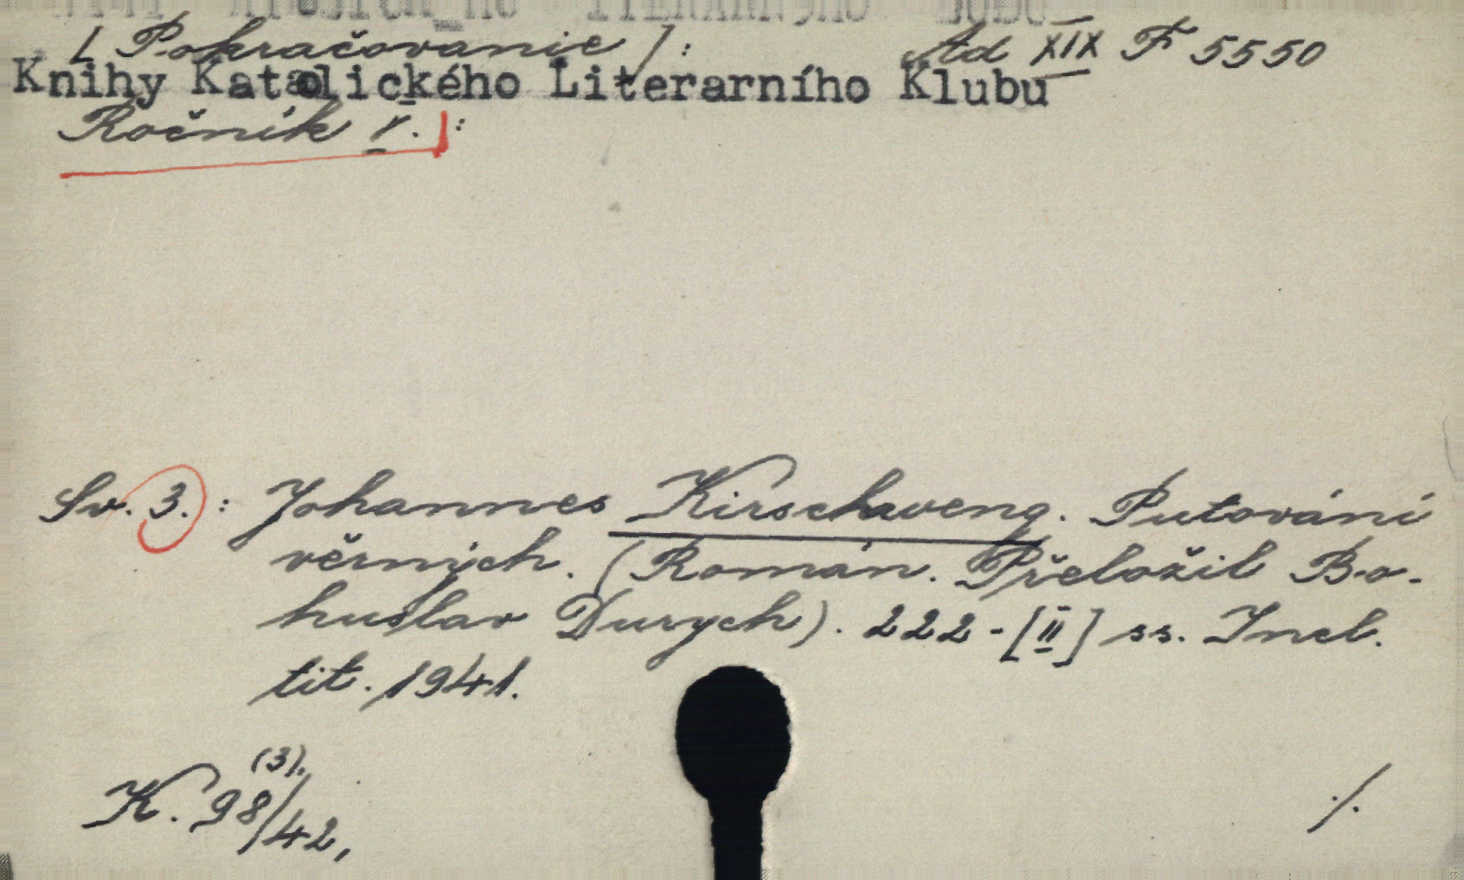 [Pokračovanie]: Ad XIX F 5550
Knihy Katolického Literarního Klubu
Ročník V.]:
Sv. 3. : Johannes Kirschweng. Putování
věrných. (Román. Přeložil Bo-
huslav Durych). 222-[II] ss. Incl.
tit. 1941.
(3).
K. 98/42,
./.